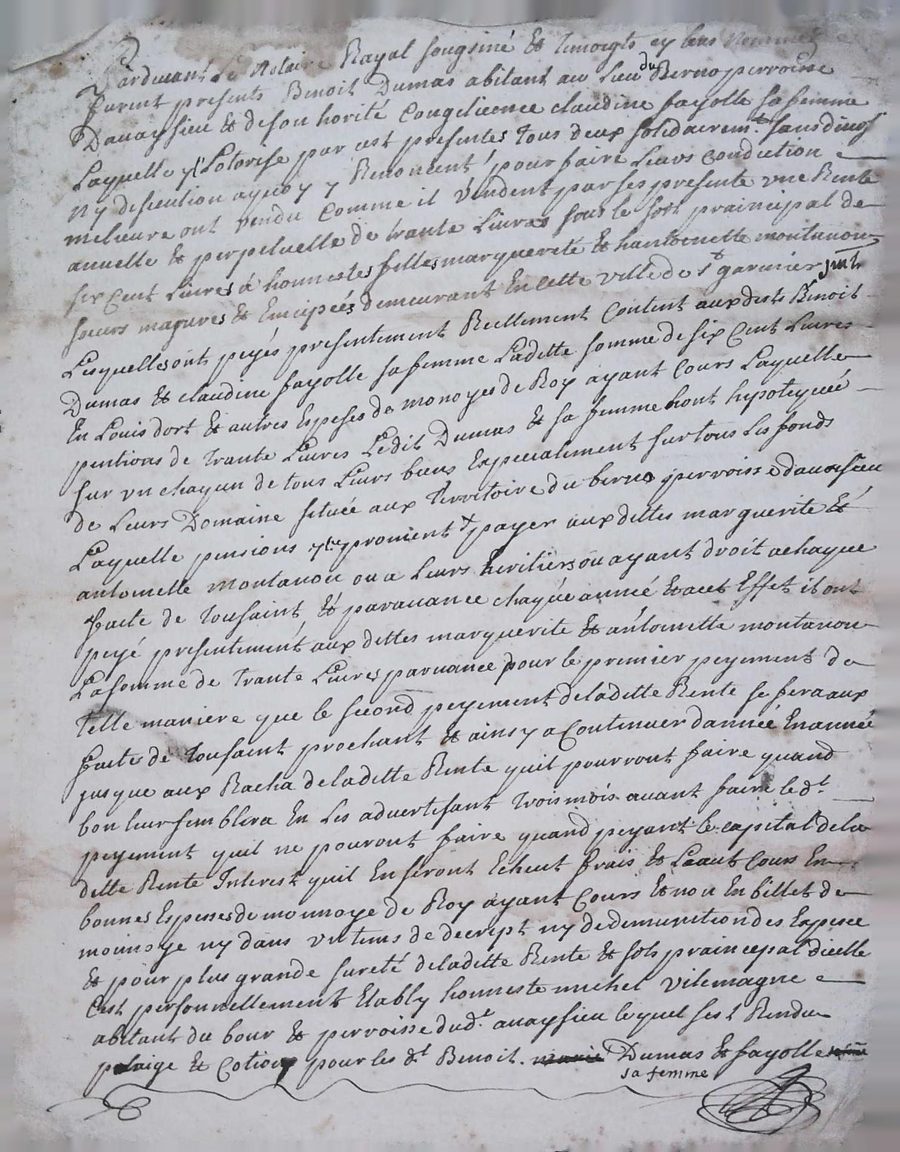 Pardevant Le Notaire Royal sousiné & Temoigts cy bas Nommez
furent presents Benoit Dumas abitant au Lieu du Berno perroisse
Davaysieu & de son horité Congilience claudine fayolle sa femme
Laquelle yl Lotorise par ast presentes Tous deux solidairemt sans divis
ny discution aquoy y Renoncent pour faire Leurs conduction
melieure ont vendu comme il vendent par ses presente une Rente
anuelle & perpetuelle de trante Livres sous le sort prainsipal de
six Cent Livres à honnestes filles marguerite & hantoinette montanou
sœurs magures & Emcipées demeurant En cette ville de st garmier
Lesquelles ont peyés presentement Reellement Content aux dits Benoit
Dumas & claudine fayolle sa femme Laditte somme de six Cent Livres
En Louis dort & autres Espeses de monoyes de Roy ayant Cours Laquelle
pentions de Trante Livres Ledit Dumas & sa femme hont hipotequée
sur un chaqun de tous Leurs biens Especialement sur tous Les fonds
de Leurs Domaine situéé aux Territoire du berno perroisse davaysieu
Laquelle pensions promient payer aux dittes marguerite &
antoinette montanou ou a Leurs heritiers ou ayant droit achaque
faite de Tousaint, & paravance chaque année Et a cet Effet il ont
peyé presentement aux dittes marguerite & antoinette montanou
La somme de Trante Livres parvance pour le premier peyement de
Telle manière que le second peyement deladitte Rente se fera aux
faites de Tousaint prochant & ainsy a Continuer dannéé En année
jusque aux Racha deladitte Rente quil pourront faire quand
bon leur semblera En Les advertisant Trois mois avant faire le dt
peyement quil ne pouront faire quand peyant le capital dela
ditte Rente Interest quil En seront Echeut frais & Leaut Cours En
bonnes Espeses de monnoye de Roy ayant Cours Et non En billet de
moinoye ny dans de decrept ny de demunition des Espece
& pour plus grande sureté deladitte Rente & sort prainsepal dicelle
Cest personnellement Etably honneste michel vilemagne
abitant du bour & perroisse dudt avaysieu lequel ses t Rendu
plaige & Cotion pour les dt Benoit Dumas & fayolle
sa femme